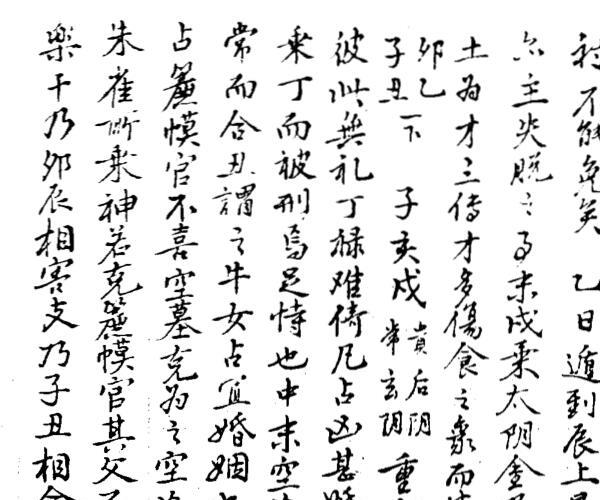 不能免矣 乙日遁到辰上
亦主災脫之事末戌乘太阴金
土為才三傳才多傷食之象而
卯乙
子丑一下 子亥戌 貴后阴 常玄阴 重
彼此無礼丁祿难倚凡占凶甚
乘丁而被刑焉足恃也中末空
常而合丑謂之牛女占宜婚姻
占簾幙官不喜空墓克为之空
朱雀所乘神若克簾幙官其文
樂干乃卯辰相害支乃子丑相合